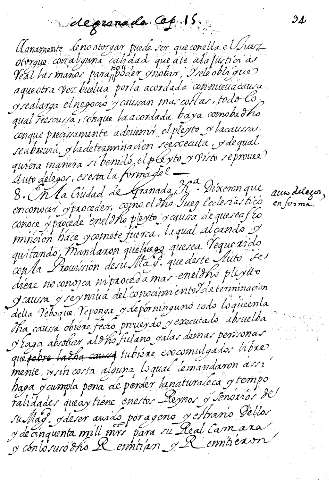 de granada Cap. 15. 32
llanamente de no otorgar puede ser que con ella el Juez
otorgue con alguna calidad que ate a la justicia
Real las manos para poder y notar, y se le obligue
a que otra vez vuelva por la acordada con nueva causa
y se alarga el negocio y causan mas costas, todo lo
qual se escusa, con que la acordada baya
con que precisamente a de venir el pleyto y la causa
se acavara, y la determinacion se execute, y de qual
quiera manera si benido, el pleyto, y visto se provee
Auto de legos, es esta la forma de él —
8. En la Ciudad de Granada, &ra. Dixeron que
en conocer, y proceder, como el dho Juez eclesiastico
conoce y procede en el dho pleyto, y causa de que se a fho
mision hace y comete fuerza, la qual alçando y
quitando, Mandaron que luego que sea requerido
con la Provision de su Magd. que deste Auto se
diere no conosca ni proceda mas en el dho pleyto
y causa, y se ynhiva del conocimiento y determinacion
della y Reponga, y de por ninguno todo lo que en la
dha causa obiere fecho proveydo, y executado absuelba
y haga absolver al dho fulano, y a las demas personas
que sobre la dha causa tubiere excomulgados libre
mente, y sin costa alguna, lo qual le mandaron assi
haga y cumpla pena de perder la naturaleza y tempo
ralidades que a y tiene en estos Reynos y senorios de
su Magd. y de ser avido por ageno y estraño dellos
y de cinquenta mill mrs para su Real Camara
y con lo suso dho Remitian y Remitieron
auto de legos,
en forma